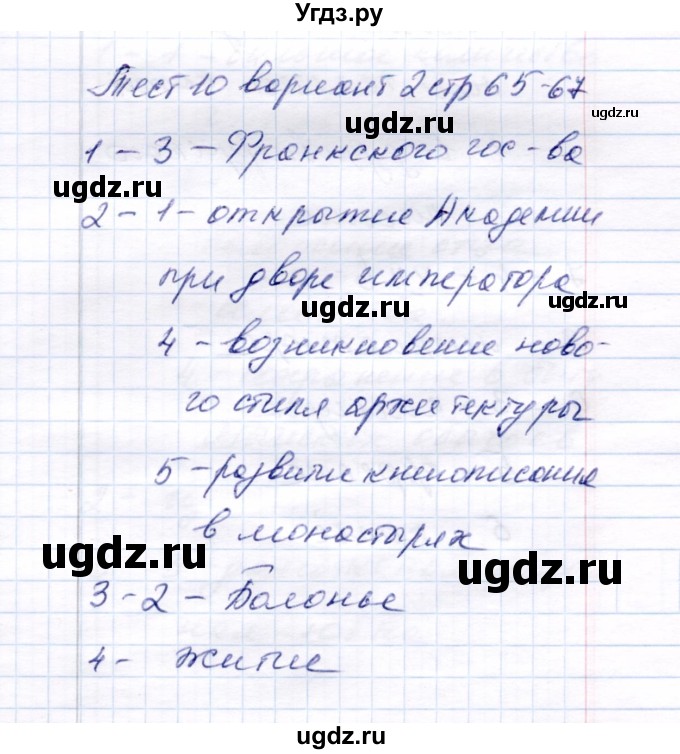 Угдз.ру
Тест 10 вариант 2 стр 65-67
ugdz.ru
ugdz.ru
1 - 3 - Франкского гос-ва
ugdz.ru
ugdz.ru
2 - 1 - открытие Академии
при дворе императора
ugdz.ru
ugdz.ru
4 - возникновение ново-
ugdz.ru
го стиля архитектуры
ugdz.ru
5 - развитие книгописания
в монастырях
ugdz.ru
ugdz.ru
3 - 2 - Болонье
ugdz.ru
4 - житие
ugdz.ru
ugdz.ru